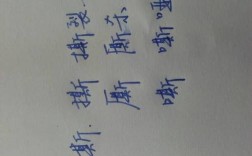 斯. 撕 撕裂.
厮 厮杀
嘶 嘶哑